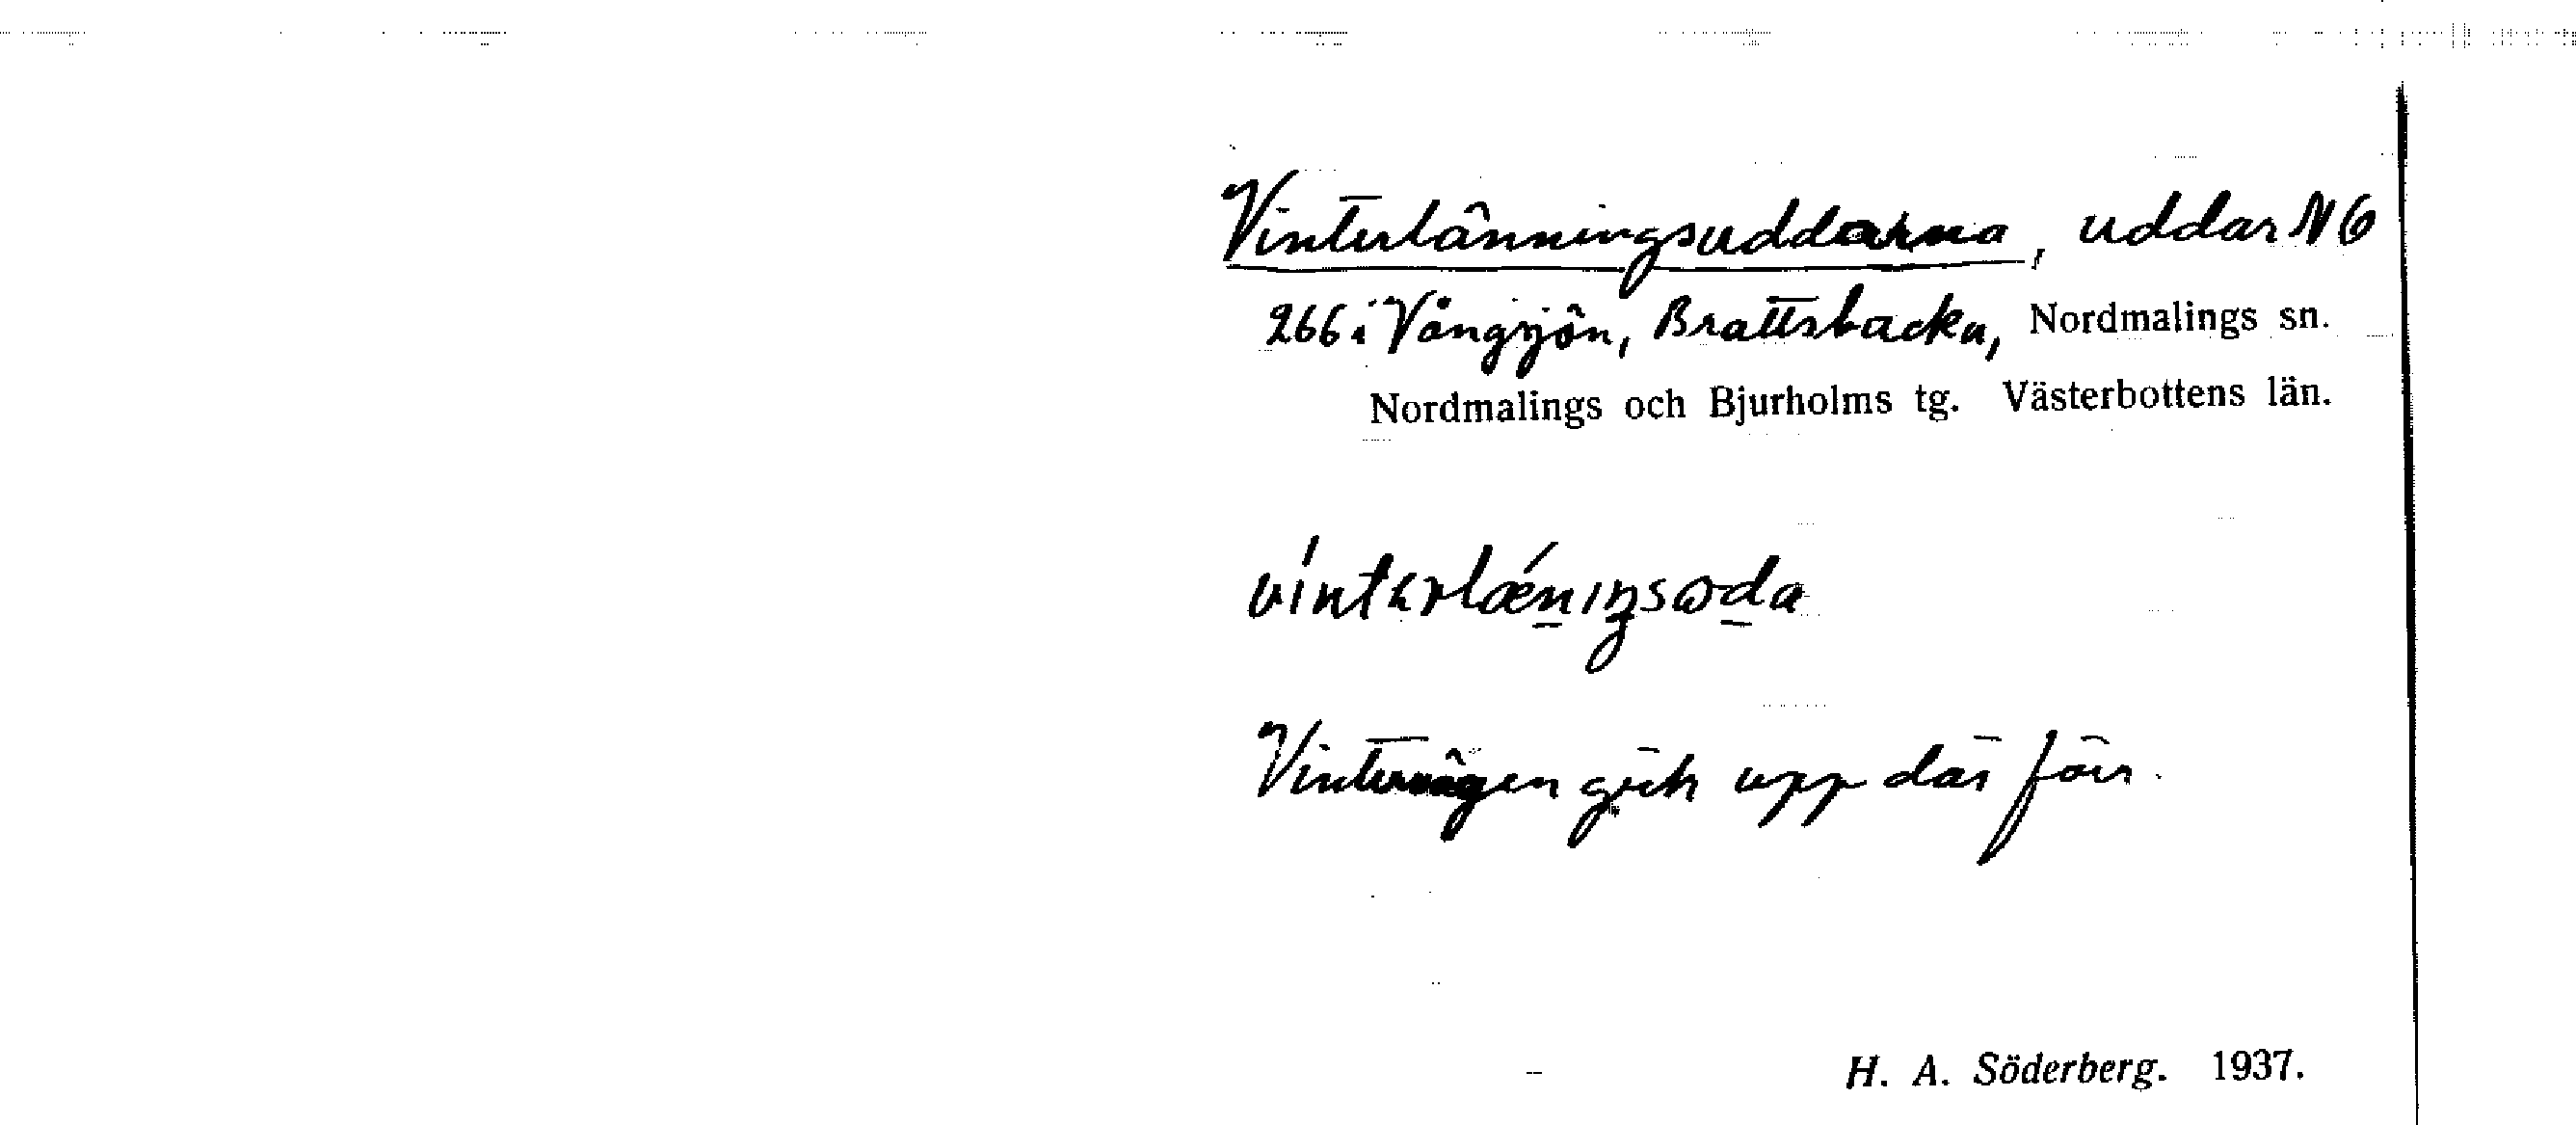 Vinterlänningsuddarna, uddar N 6
266 i Vångsjön, Brattsbacka, Nordmalings sn.
Nordmalings och Bjurholms tg. Västerbottens län.
Vintervägen gick upp där förr.
H. A. Söderberg. 1937.